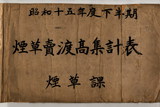 昭和十五年度下半期
煙草賣渡高集計表
煙草課